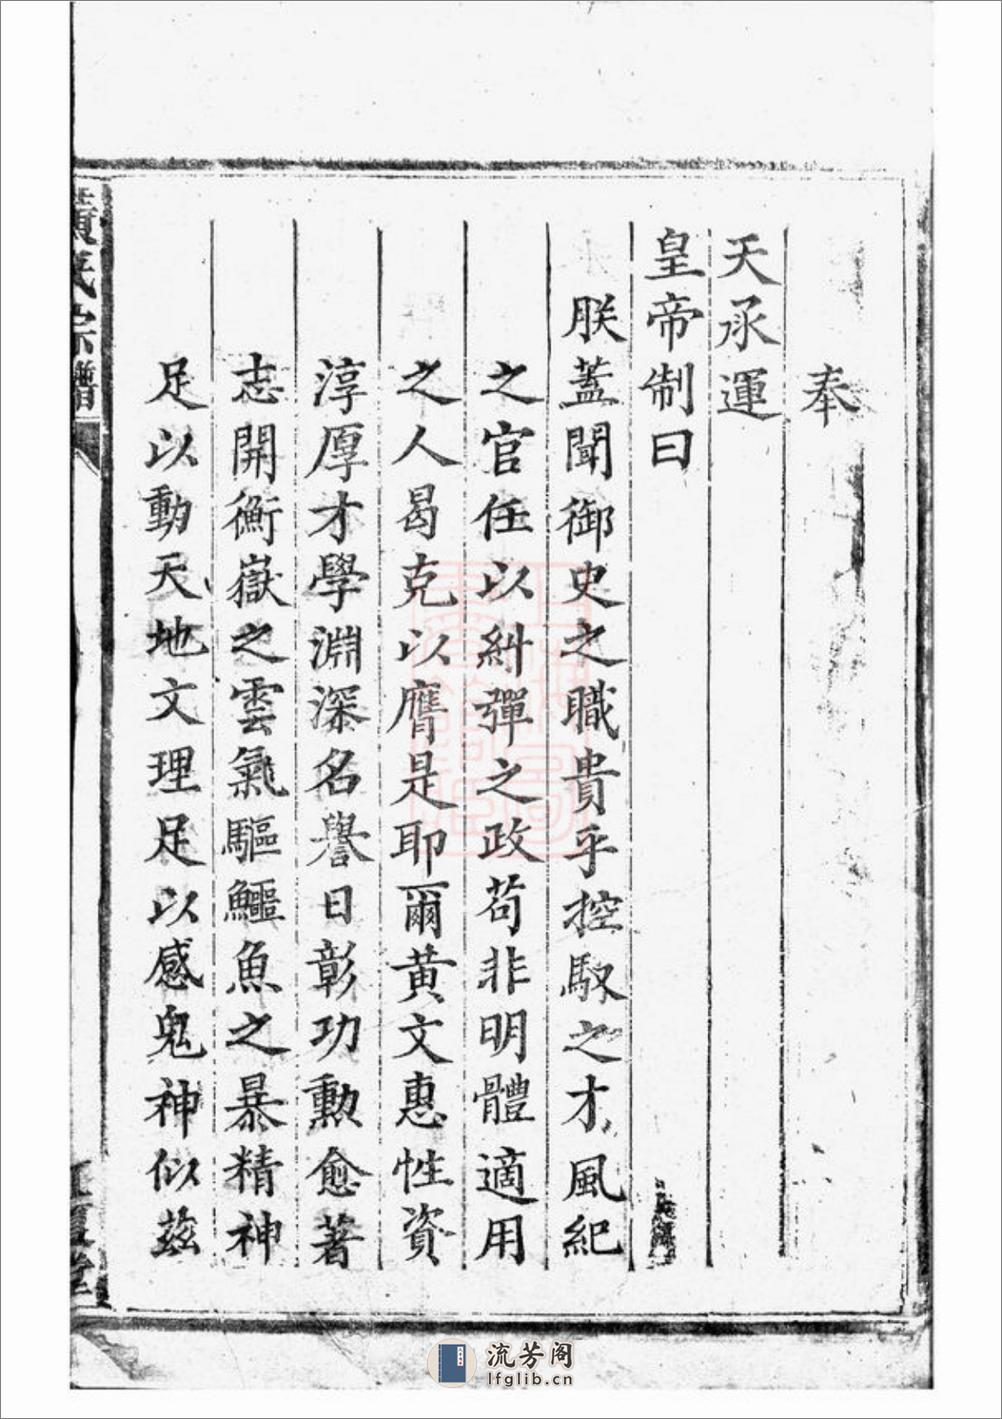 奉
天承運
皇帝制曰
朕蓋聞御史之職貴乎控馭之才風紀
之官任以糾彈之政苟非明體適用
之人曷克以膺是耶爾黄文惠性資
淳厚才學淵深名譽日彰功勲愈著
志開衡嶽之雲氣驅鱷魚之暴精神
足以動天地文理足以感鬼神似兹
黄氏宗譜
流芳阁
lfglib.cn